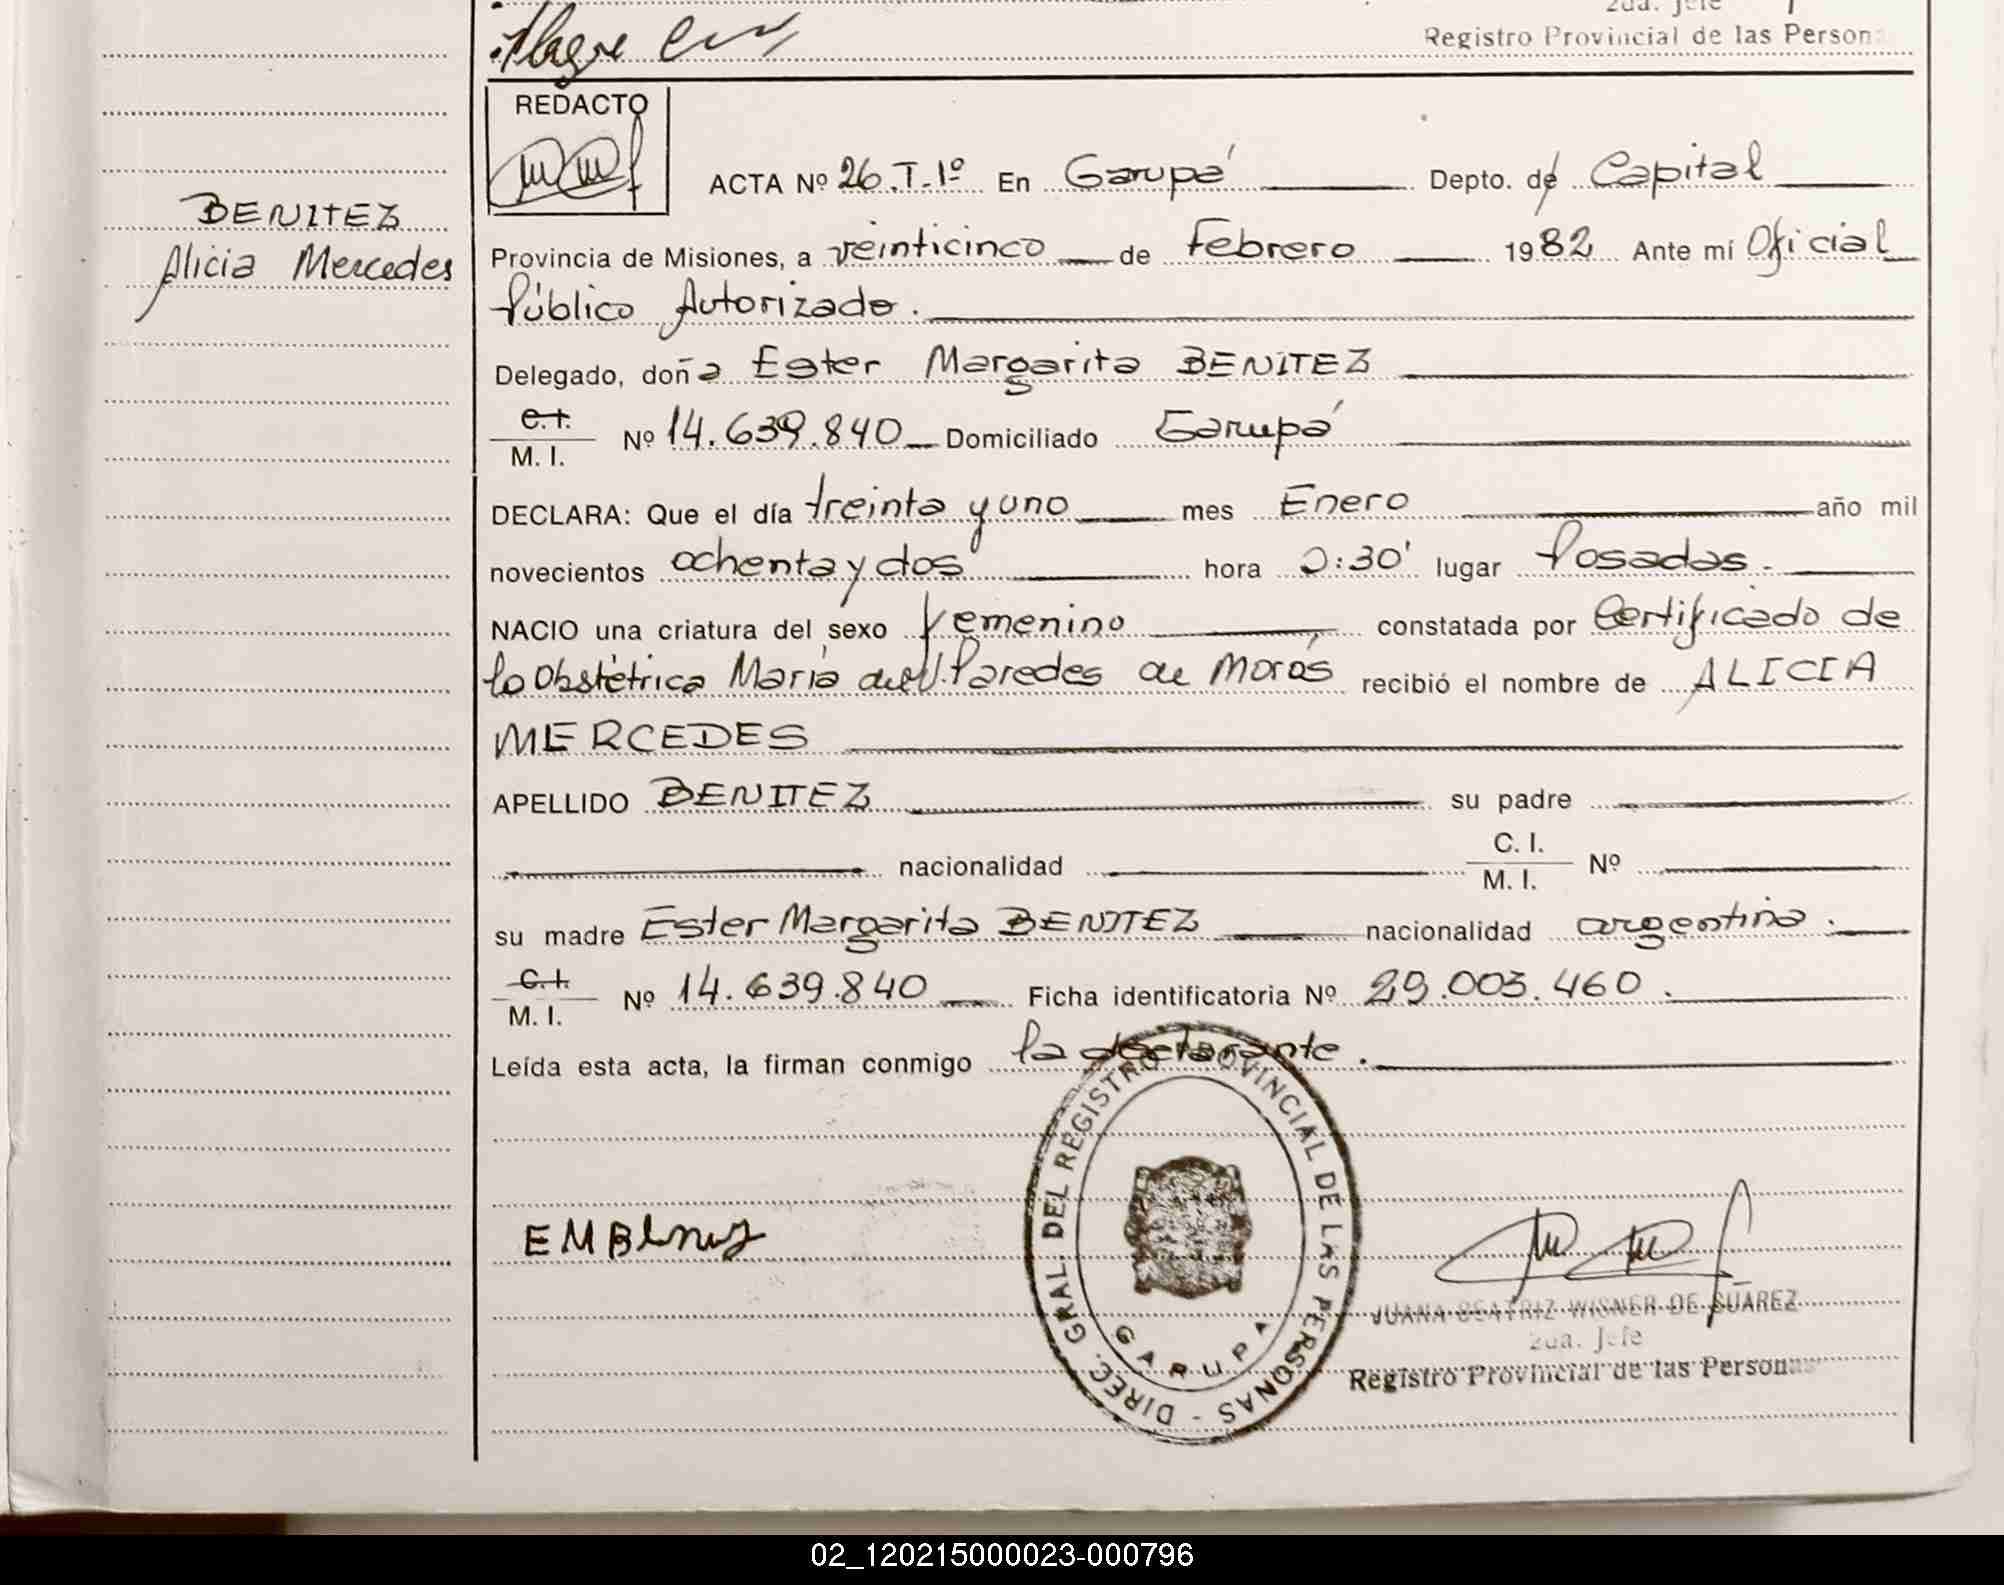 2da. Jefe
Registro Provincial de las Person
REDACTO
BENITEZ
Alicia Mercedes
ACTA Nº 26.T.1º En Garupá Depto. de Capital
Provincia de Misiones, a veinticinco de Febrero 1982 Ante mí Oficial
Público Autorizado.
Delegado, doña Ester Margarita BENITEZ
C.I.
M. I. Nº 14.639.840 Domiciliado Garupá
DECLARA: Que el día treinta y uno mes Enero año mil
novecientos ochenta y dos hora 2:30' lugar Posadas.
NACIO una criatura del sexo femenino constatada por Certificado de
la Obstétrica María Paredes de Morás recibió el nombre de ALICIA
MERCEDES
APELLIDO BENITEZ su padre
nacionalidad C. I.
M. I. Nº
su madre Ester Margarita BENITEZ nacionalidad argentina.
C.I.
M. I. Nº 14.639.840 Ficha identificatoria Nº 29.003.460.
Leída esta acta, la firman conmigo la declarante.
DIREC. GRAL. DEL REGISTRO PROVINCIAL DE LAS PERSONAS -
GARUPA
JUANA BEATRIZ WISNER DE SUAREZ
2da. Jefe
Registro Provincial de las Personas
02_120215000023-000796